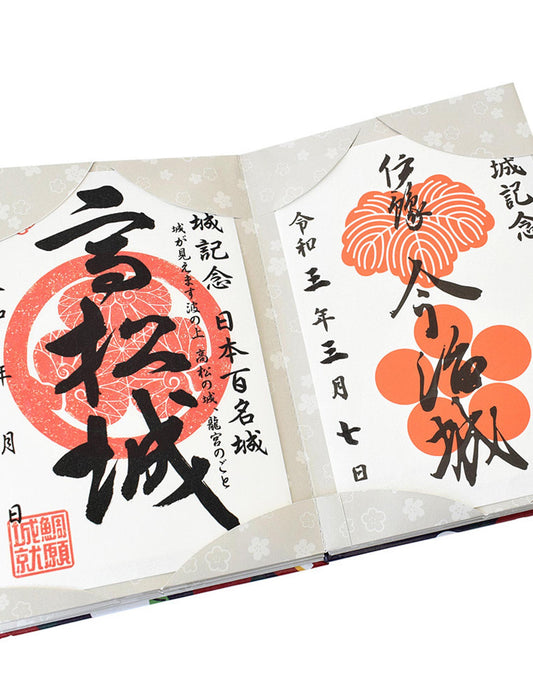 城記念
伊豫 今治城
令和三年三月七日
城記念 日本百名城
城が見えます波の上 高松の城、龍宮のごと
高松城
和 年 月 日
鯛願
城就